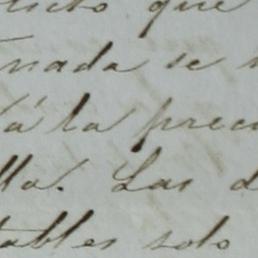 que
nada se
a la prec
lla. Las d
tables solo